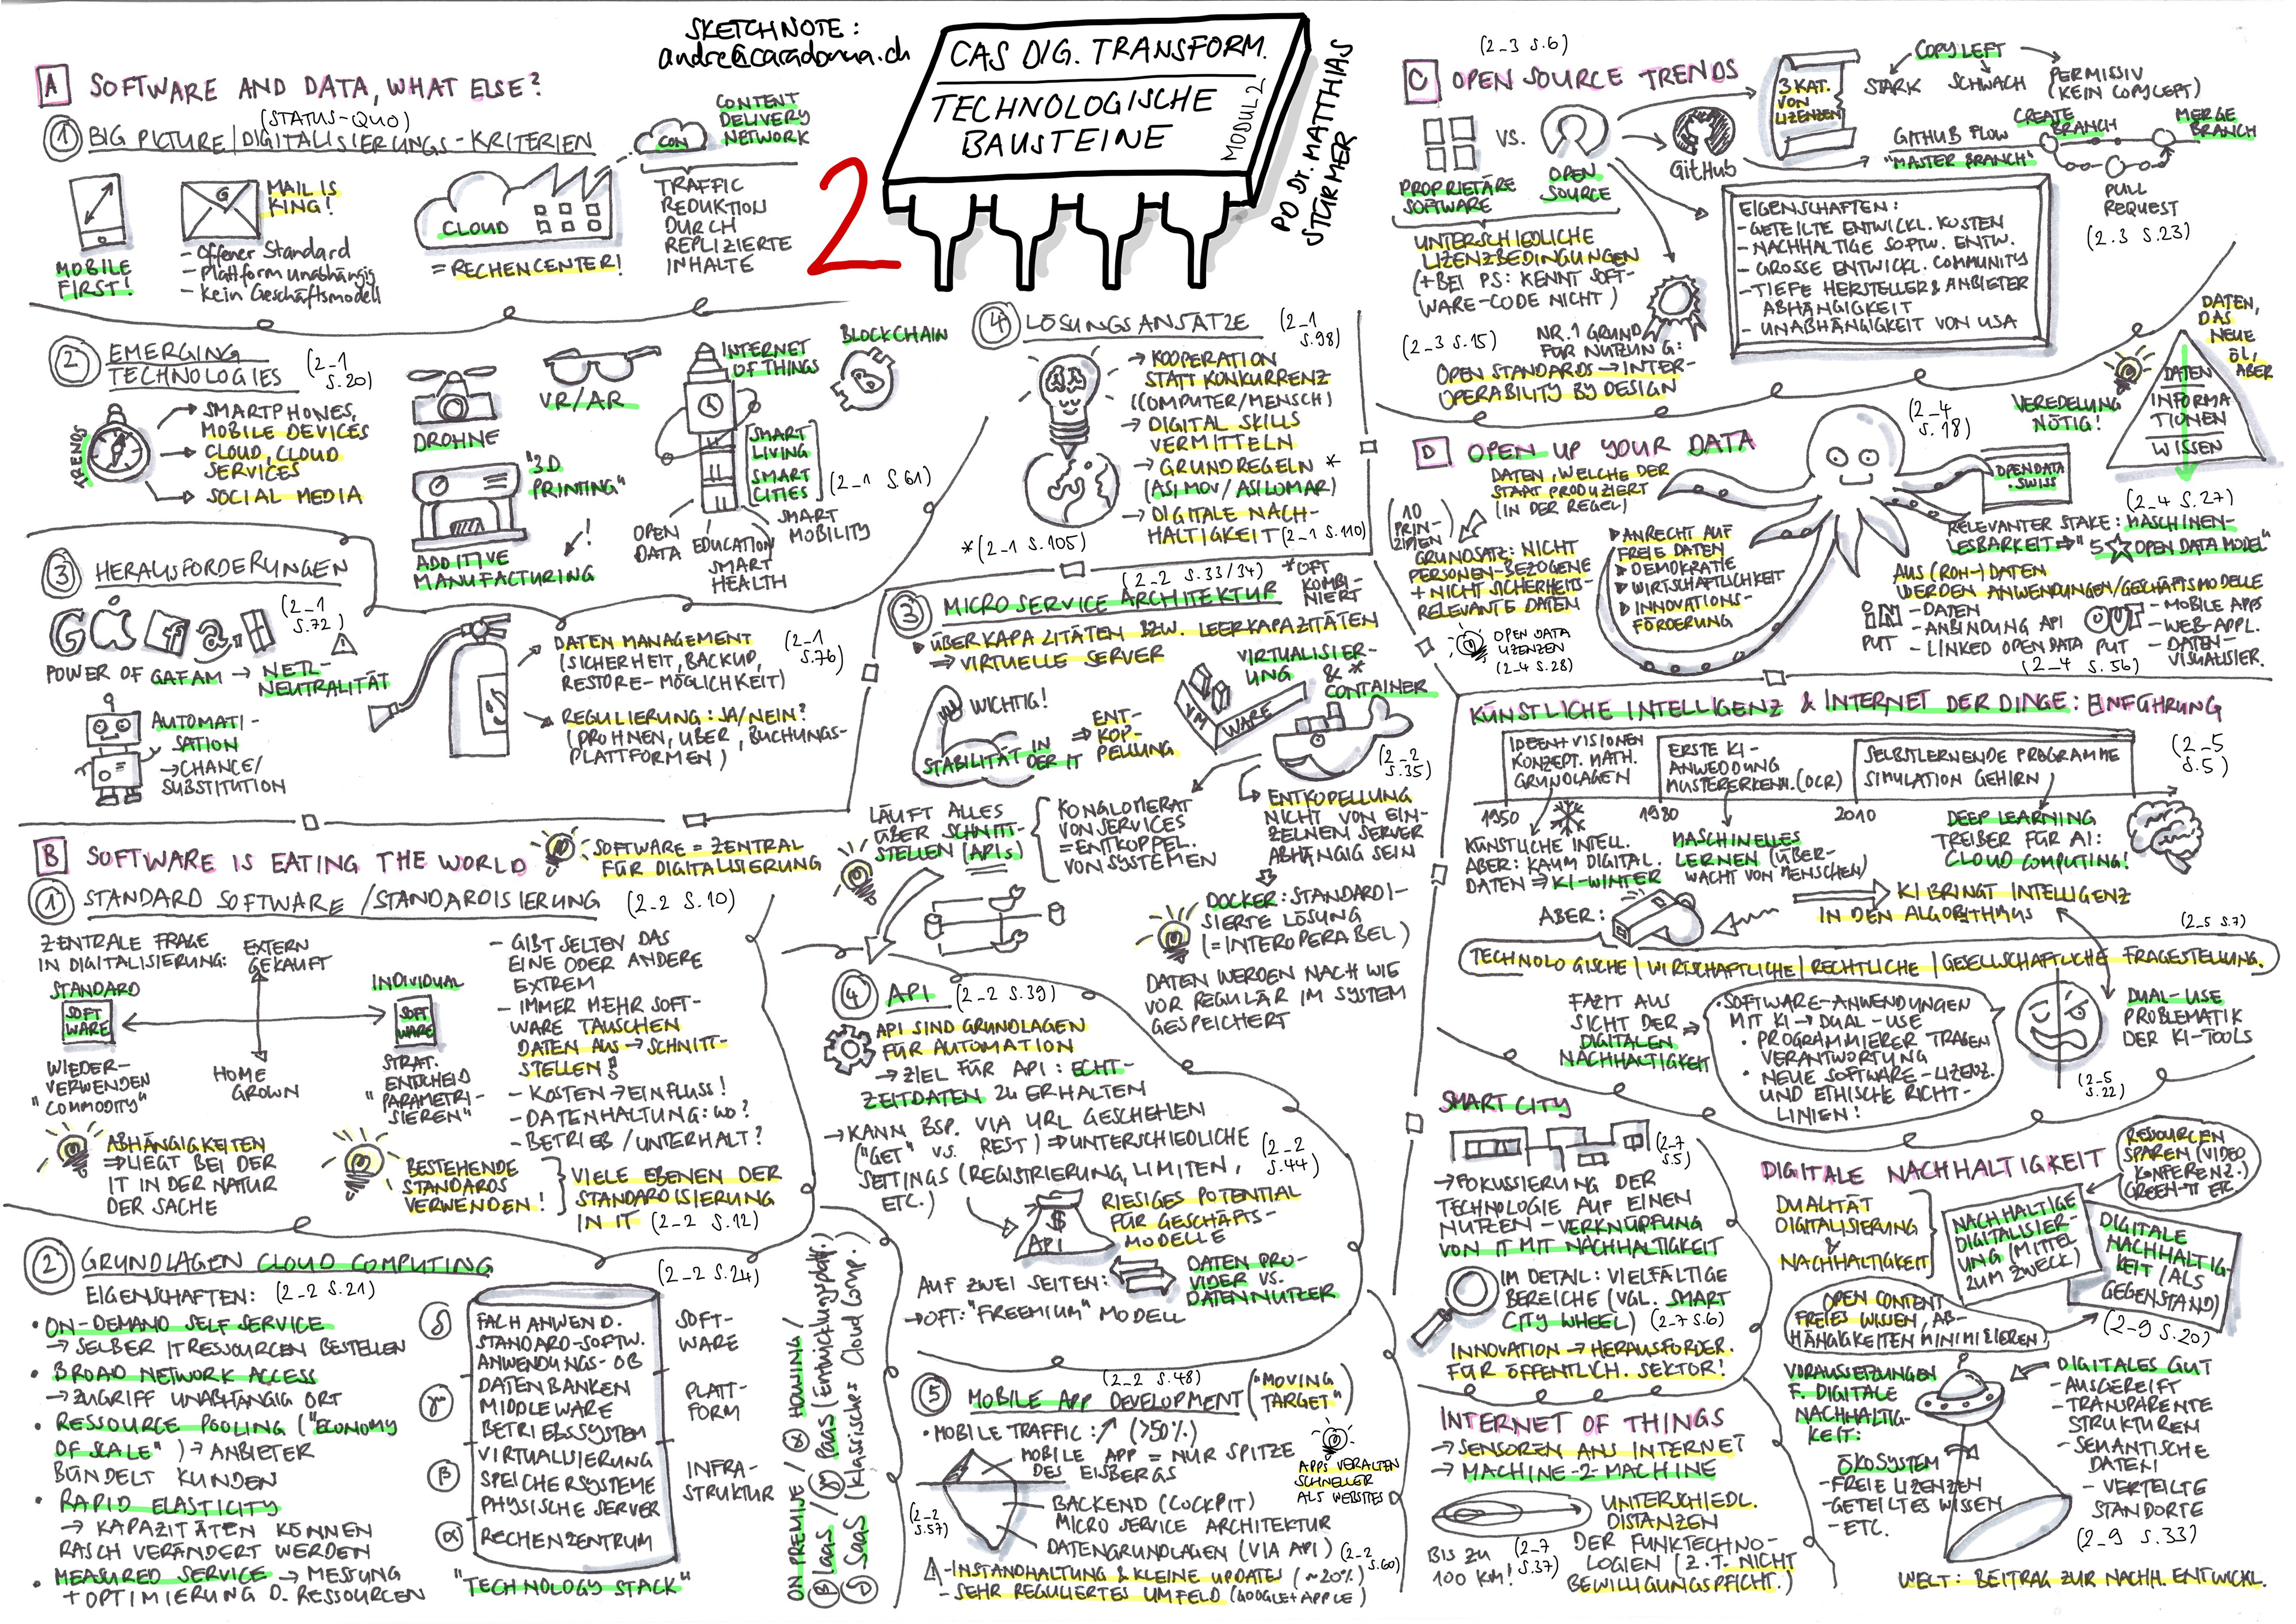 SKETCHNOTE:
andre@caradonna.ch
CAS DIG. TRANSFORM.
TECHNOLOGISCHE
BAUSTEINE
MODUL 2
PD Dr. MATTHIAS
STÜRMER
2
A SOFTWARE AND DATA, WHAT ELSE?
(STATUS-QUO)
1 BIG PICTURE/DIGITALISIERUNGS-KRITERIEN
MOBILE
FIRST!
MAIL IS
KING!
- Offener Standard
- Plattform unabhängig
- Kein Geschäftsmodell
CLOUD
= RECHENCENTER!
CDN
CONTENT
DELIVERY
NETWORK
TRAFFIC
REDUKTION
DURCH
REPLIZIERTE
INHALTE
2 EMERGING
TECHNOLOGIES
(2_1
S.20)
TRENDS
→ SMARTPHONES,
MOBILE DEVICES
→ CLOUD, CLOUD
SERVICES
→ SOCIAL MEDIA
DROHNE
VR/AR
"3D
PRINTING"
!
ADDITIVE
MANUFACTURING
INTERNET
OF THINGS
BLOCKCHAIN
[SMART
LIVING
SMART
CITIES]
(2_1 S.61)
OPEN
DATA
EDUCATION
SMART
HEALTH
SMART
MOBILITY
3 HERAUSFORDERUNGEN
(2_1
S.72)
POWER OF GAFAM → NETZ-
NEUTRALITÄT
AUTOMATI-
SATION
→ CHANCE/
SUBSTITUTION
DATEN MANAGEMENT
(SICHERHEIT, BACKUP,
RESTORE-MÖGLICHKEIT)
(2_1
S.76)
REGULIERUNG: JA/NEIN?
(DROHNEN, UBER, BUCHUNGS-
PLATTFORMEN)
4 LÖSUNGSANSÄTZE
(2_1
S.98)
→ KOOPERATION
STATT KONKURRENZ
(COMPUTER/MENSCH)
→ DIGITAL SKILLS
VERMITTELN
→ GRUNDREGELN *
(ASIMOV/ASILOMAR)
→ DIGITALE NACH-
HALTIGKEIT (2_1 S.110)
*(2_1 S.105)
B SOFTWARE IS EATING THE WORLD
SOFTWARE = ZENTRAL
FÜR DIGITALISIERUNG
1 STANDARD SOFTWARE/STANDARDISIERUNG (2_2 S.10)
ZENTRALE FRAGE
IN DIGITALISIERUNG:
EXTERN
GEKAUFT
STANDARD
SOFT
WARE
INDIVIDUAL
SOFT
WARE
WIEDER-
VERWENDEN
"COMMODITY"
HOME
GROWN
STRAT.
ENTSCHEID
"PARAMETRI-
SIEREN"
- GIBT SELTEN DAS
EINE ODER ANDERE
EXTREM
- IMMER MEHR SOFT-
WARE TAUSCHEN
DATEN AUS → SCHNITT-
STELLEN!
- KOSTEN → EINFLUSS!
- DATENHALTUNG: WO?
- BETRIEB/UNTERHALT?
ABHÄNGIGKEITEN
⇒ LIEGT BEI DER
IT IN DER NATUR
DER SACHE
BESTEHENDE
STANDARDS
VERWENDEN!
VIELE EBENEN DER
STANDARDISIERUNG
IN IT (2_2 S.12)
2 GRUNDLAGEN CLOUD COMPUTING
EIGENSCHAFTEN: (2_2 S.21)
• ON-DEMAND SELF SERVICE
→ SELBER IT RESSOURCEN BESTELLEN
• BROAD NETWORK ACCESS
→ ZUGRIFF UNABHÄNGIG ORT
• RESSOURCE POOLING ("ECONOMY
OF SCALE") → ANBIETER
BÜNDELT KUNDEN
• RAPID ELASTICITY
→ KAPAZITÄTEN KÖNNEN
RASCH VERÄNDERT WERDEN
• MEASURED SERVICE → MESSUNG
+ OPTIMIERUNG D. RESSOURCEN
(2_2 S.24)
δ
FACHANWEND.
STANDARD-SOFTW.
ANWENDUNGS-OB
SOFT-
WARE
γ
DATENBANKEN
MIDDLEWARE
BETRIEBSSYSTEM
PLATT-
FORM
β
VIRTUALISIERUNG
SPEICHERSYSTEME
PHYSISCHE SERVER
INFRA-
STRUKTUR
α
RECHENZENTRUM
"TECHNOLOGY STACK"
ON PREMISE / α HOUSING /
β IaaS / γ PaaS (Entwicklungsplattf.)
δ SaaS (klassisches Cloud Comp.)
(2_2 S.33/34)
*OFT
KOMBI-
NIERT
3 MICROSERVICE ARCHITEKTUR
▸ ÜBERKAPAZITÄTEN BZW. LEERKAPAZITÄTEN
⇒ VIRTUELLE SERVER
VIRTUALISIER-
UNG
& *
CONTAINER
VM
WARE
WICHTIG!
STABILITÄT IN
DER IT
⇒ ENT-
KOP-
PELLUNG
(2_2
S.35)
LÄUFT ALLES
ÜBER SCHNITT-
STELLEN (APIs)
KONGLOMERAT
VON SERVICES
= ENTKOPPEL.
VON SYSTEMEN
ENTKOPELLUNG
NICHT VON EIN-
ZELNEM SERVER
ABHÄNGIG SEIN
DOCKER: STANDARDI-
SIERTE LÖSUNG
(= INTEROPERABEL)
DATEN WERDEN NACH WIE
VOR REGULÄR IM SYSTEM
GESPEICHERT
4 API (2_2 S.39)
API SIND GRUNDLAGEN
FÜR AUTOMATION
→ ZIEL FÜR API: ECHT-
ZEITDATEN ZU ERHALTEN
→ KANN BSP. VIA URL GESCHEHEN
("GET" VS. REST) ⇒ UNTERSCHIEDLICHE
SETTINGS (REGISTRIERUNG, LIMITEN,
ETC.)
(2_2
S.44)
$
API
RIESIGES POTENTIAL
FÜR GESCHÄFTS-
MODELLE
AUF ZWEI SEITEN:
DATEN PRO-
VIDER VS.
DATENNUTZER
→ OFT: "FREEMIUM" MODELL
(2_2 S.48)
5 MOBILE APP DEVELOPMENT ("MOVING
TARGET")
• MOBILE TRAFFIC: ↗ (>50%)
MOBILE APP = NUR SPITZE
DES EISBERGS
APPS VERALTEN
SCHNELLER
ALS WEBSITES
BACKEND (COCKPIT)
MICRO SERVICE ARCHITEKTUR
DATENGRUNDLAGEN (VIA API)
(2_2
S.57)
(2_2
S.60)
- INSTANDHALTUNG & KLEINE UPDATES (~20%)
- SEHR REGULIERTES UMFELD (GOOGLE+APPLE)
(2_3 S.6)
C OPEN SOURCE TRENDS
VS.
PROPRIETÄRE
SOFTWARE
OPEN
SOURCE
GitHub
3 KAT.
VON
LIZENZEN
COPYLEFT
STARK
SCHWACH
PERMISSIV
(KEIN COPYLEFT)
GITHUB FLOW
"MASTER BRANCH"
CREATE
BRANCH
MERGE
BRANCH
PULL
REQUEST
(2.3 S.23)
UNTERSCHIEDLICHE
LIZENZBEDINGUNGEN
(+ BEI PS: KENNT SOFT-
WARE-CODE NICHT)
EIGENSCHAFTEN:
- GETEILTE ENTWICKL. KOSTEN
- NACHHALTIGE SOFTW. ENTW.
- GROSSE ENTWICKL. COMMUNITY
- TIEFE HERSTELLER & ANBIETER
ABHÄNGIGKEIT
- UNABHÄNGIGKEIT VON USA
(2_3 S.15)
NR. 1 GRUND
FÜR NUTZUNG:
OPEN STANDARDS → INTER-
OPERABILITY BY DESIGN
D OPEN UP YOUR DATA
DATEN, WELCHE DER
STAAT PRODUZIERT
(IN DER REGEL)
(10
PRIN-
ZIPIEN)
GRUNDSATZ: NICHT
PERSONEN-BEZOGENE
+ NICHT SICHERHEITS-
RELEVANTE DATEN
OPEN DATA
LIZENZEN
(2_4 S.28)
▸ ANRECHT AUF
FREIE DATEN
▸ DEMOKRATIE
▸ WIRTSCHAFTLICHKEIT
▸ INNOVATIONS-
FÖRDERUNG
(2_4
S.18)
OPENDATA
.SWISS
DATEN,
DAS
NEUE
ÖL,
ABER
VEREDELUNG
NÖTIG!
DATEN
INFORMA
TIONEN
WISSEN
(2_4 S.27)
RELEVANTER STAKE: MASCHINEN-
LESBARKEIT ⇒ "5 ☆ OPEN DATA MODEL"
AUS (ROH-) DATEN
WERDEN ANWENDUNGEN/GESCHÄFTSMODELLE
IN
PUT
- DATEN
- ANBINDUNG API
- LINKED OPEN DATA
OUT
PUT
- MOBILE APPS
- WEB-APPL.
- DATEN-
VISUALISIER.
(2_4 S.56)
KÜNSTLICHE INTELLIGENZ & INTERNET DER DINGE: EINFÜHRUNG
IDEEN+VISIONEN
KONZEPT. MATH.
GRUNDLAGEN
ERSTE KI-
ANWENDUNG
MUSTERERKENN. (OCR)
SELBSTLERNENDE PROGRAMME
SIMULATION GEHIRN
(2_5
S.5)
1950
1980
2010
KÜNSTLICHE INTELL.
ABER: KAUM DIGITAL.
DATEN ⇒ KI-WINTER
MASCHINELLES
LERNEN (ÜBER-
WACHT VON MENSCHEN)
DEEP LEARNING
TREIBER FÜR AI:
CLOUD COMPUTING!
ABER:
KI BRINGT INTELLIGENZ
IN DEN ALGORITHMUS
(2_5 S.7)
TECHNOLOGISCHE | WIRTSCHAFTLICHE | RECHTLICHE | GESELLSCHAFTLICHE FRAGESTELLUNG.
FAZIT AUS
SICHT DER
DIGITALEN
NACHHALTIGKEIT
• SOFTWARE-ANWENDUNGEN
MIT KI → DUAL-USE
• PROGRAMMIERER TRAGEN
VERANTWORTUNG
• NEUE SOFTWARE-LIZENZ.
UND ETHISCHE RICHT-
LINIEN!
DUAL-USE
PROBLEMATIK
DER KI-TOOLS
(2_5
S.22)
SMART CITY
(2_7
S.5)
→ FOKUSSIERUNG DER
TECHNOLOGIE AUF EINEN
NUTZEN - VERKNÜPFUNG
VON IT MIT NACHHALTIGKEIT
IM DETAIL: VIELFÄLTIGE
BEREICHE (VGL. SMART
CITY WHEEL) (2_7 S.6)
INNOVATION → HERAUSFORDER.
FÜR ÖFFENTLICH. SEKTOR!
INTERNET OF THINGS
→ SENSOREN ANS INTERNET
→ MACHINE-2-MACHINE
UNTERSCHIEDL.
DISTANZEN
DER FUNKTECHNO-
LOGIEN (Z.T. NICHT
BEWILLIGUNGSPFLICHT.)
BIS ZU
100 KM!
(2_7
S.37)
DIGITALE NACHHALTIGKEIT
RESSOURCEN
SPAREN (VIDEO
KONFERENZ.)
GREEN-IT ETC.
DUALITÄT
DIGITALISIERUNG
&
NACHHALTIGKEIT
NACHHALTIGE
DIGITALISIER-
UNG (MITTEL
ZUM ZWECK)
DIGITALE
NACHHALTIG-
KEIT (ALS
GEGENSTAND)
OPEN CONTENT
FREIES WISSEN, AB-
HÄNGIGKEITEN MINIMIEREN
(2_9 S.20)
VORAUSSETZUNGEN
F. DIGITALE
NACHHALTIG-
KEIT:
ÖKOSYSTEM
- FREIE LIZENZEN
- GETEILTES WISSEN
- ETC.
DIGITALES GUT
- AUSGEREIFT
- TRANSPARENTE
STRUKTUREN
- SEMANTISCHE
DATEN
- VERTEILTE
STANDORTE
(2_9 S.33)
WELT: BEITRAG ZUR NACHH. ENTWICKL.